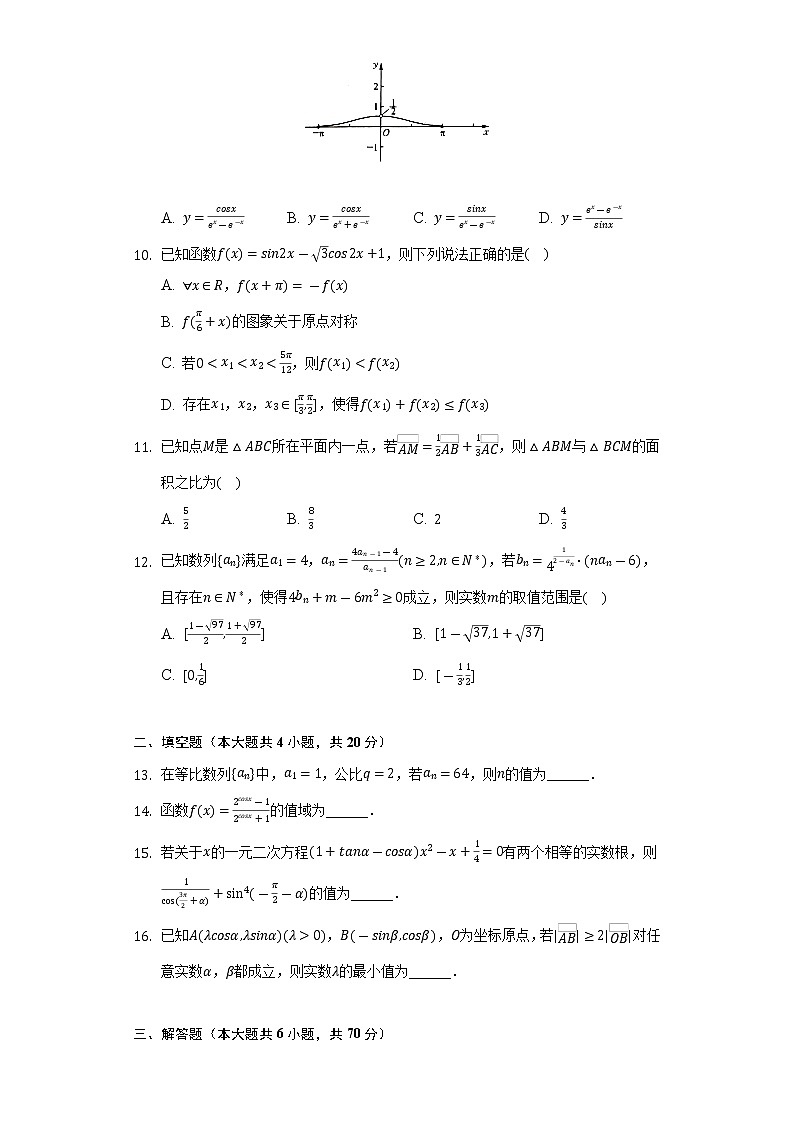 y
2
1
1/2
−π O π x
−1
A. y = cosx/(eˣ − e⁻ˣ) B. y = cosx/(eˣ + e⁻ˣ) C. y = sinx/(eˣ − e⁻ˣ) D. y = (eˣ − e⁻ˣ)/sinx
10. 已知函数f(x) = sin2x − √3cos2x + 1，则下列说法正确的是( )
A. ∀x ∈ R，f(x + π) = − f(x)
B. f(π/6 + x)的图象关于原点对称
C. 若0 < x₁ < x₂ < 5π/12，则f(x₁) < f(x₂)
D. 存在x₁，x₂，x₃ ∈ [π/3,π/2]，使得f(x₁) + f(x₂) ≤ f(x₃)
11. 已知点M是 △ ABC所在平面内一点，若AM = 1/2AB + 1/3AC，则 △ ABM与 △ BCM的面
积之比为( )
A. 5/2 B. 8/3 C. 2 D. 4/3
12. 已知数列{aₙ}满足a₁ = 4，aₙ = (4aₙ₋₁ − 4)/aₙ₋₁(n ≥ 2,n ∈ N*)，若bₙ = 4^(1/(2 − aₙ)) · (naₙ − 6)，
且存在n ∈ N*，使得4bₙ + m − 6m² ≥ 0成立，则实数m的取值范围是( )
A. [(1 − √97)/2,(1 + √97)/2] B. [1 − √37,1 + √37]
C. [0,1/6] D. [ − 1/3,1/2]
二、填空题（本大题共 4 小题，共 20 分）
13. 在等比数列{aₙ}中，a₁ = 1，公比q = 2，若aₙ = 64，则n的值为______．
14. 函数f(x) = (2^cosx − 1)/(2^cosx + 1)的值域为______．
15. 若关于x的一元二次方程(1 + tanα − cosα)x² − x + 1/4 = 0有两个相等的实数根，则
1/cos(3π/2 + α) + sin⁴( − π/2 − α)的值为______．
16. 已知A(λcosα,λsinα)(λ > 0)，B( − sinβ,cosβ)，O为坐标原点，若|AB| ≥ 2|OB|对任
意实数α，β都成立，则实数λ的最小值为______．
三、解答题（本大题共 6 小题，共 70 分）